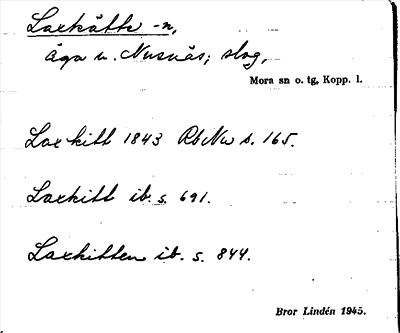 Laxkätte -n,
äga v. Nusnäs; skog,
Mora sn o. tg, Kopp. l.
Lax kitt 1843 RbNw s. 165.
Laxkitt ib. s. 691.
Laxkitten ib. s. 844.
Bror Lindén 1945.